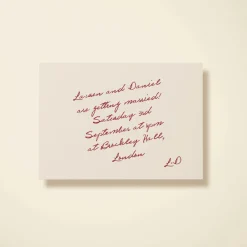 Lauren and Daniel
are getting married!
Saturday 3rd
September at 4pm
at Brickley Hall,
London
L+D